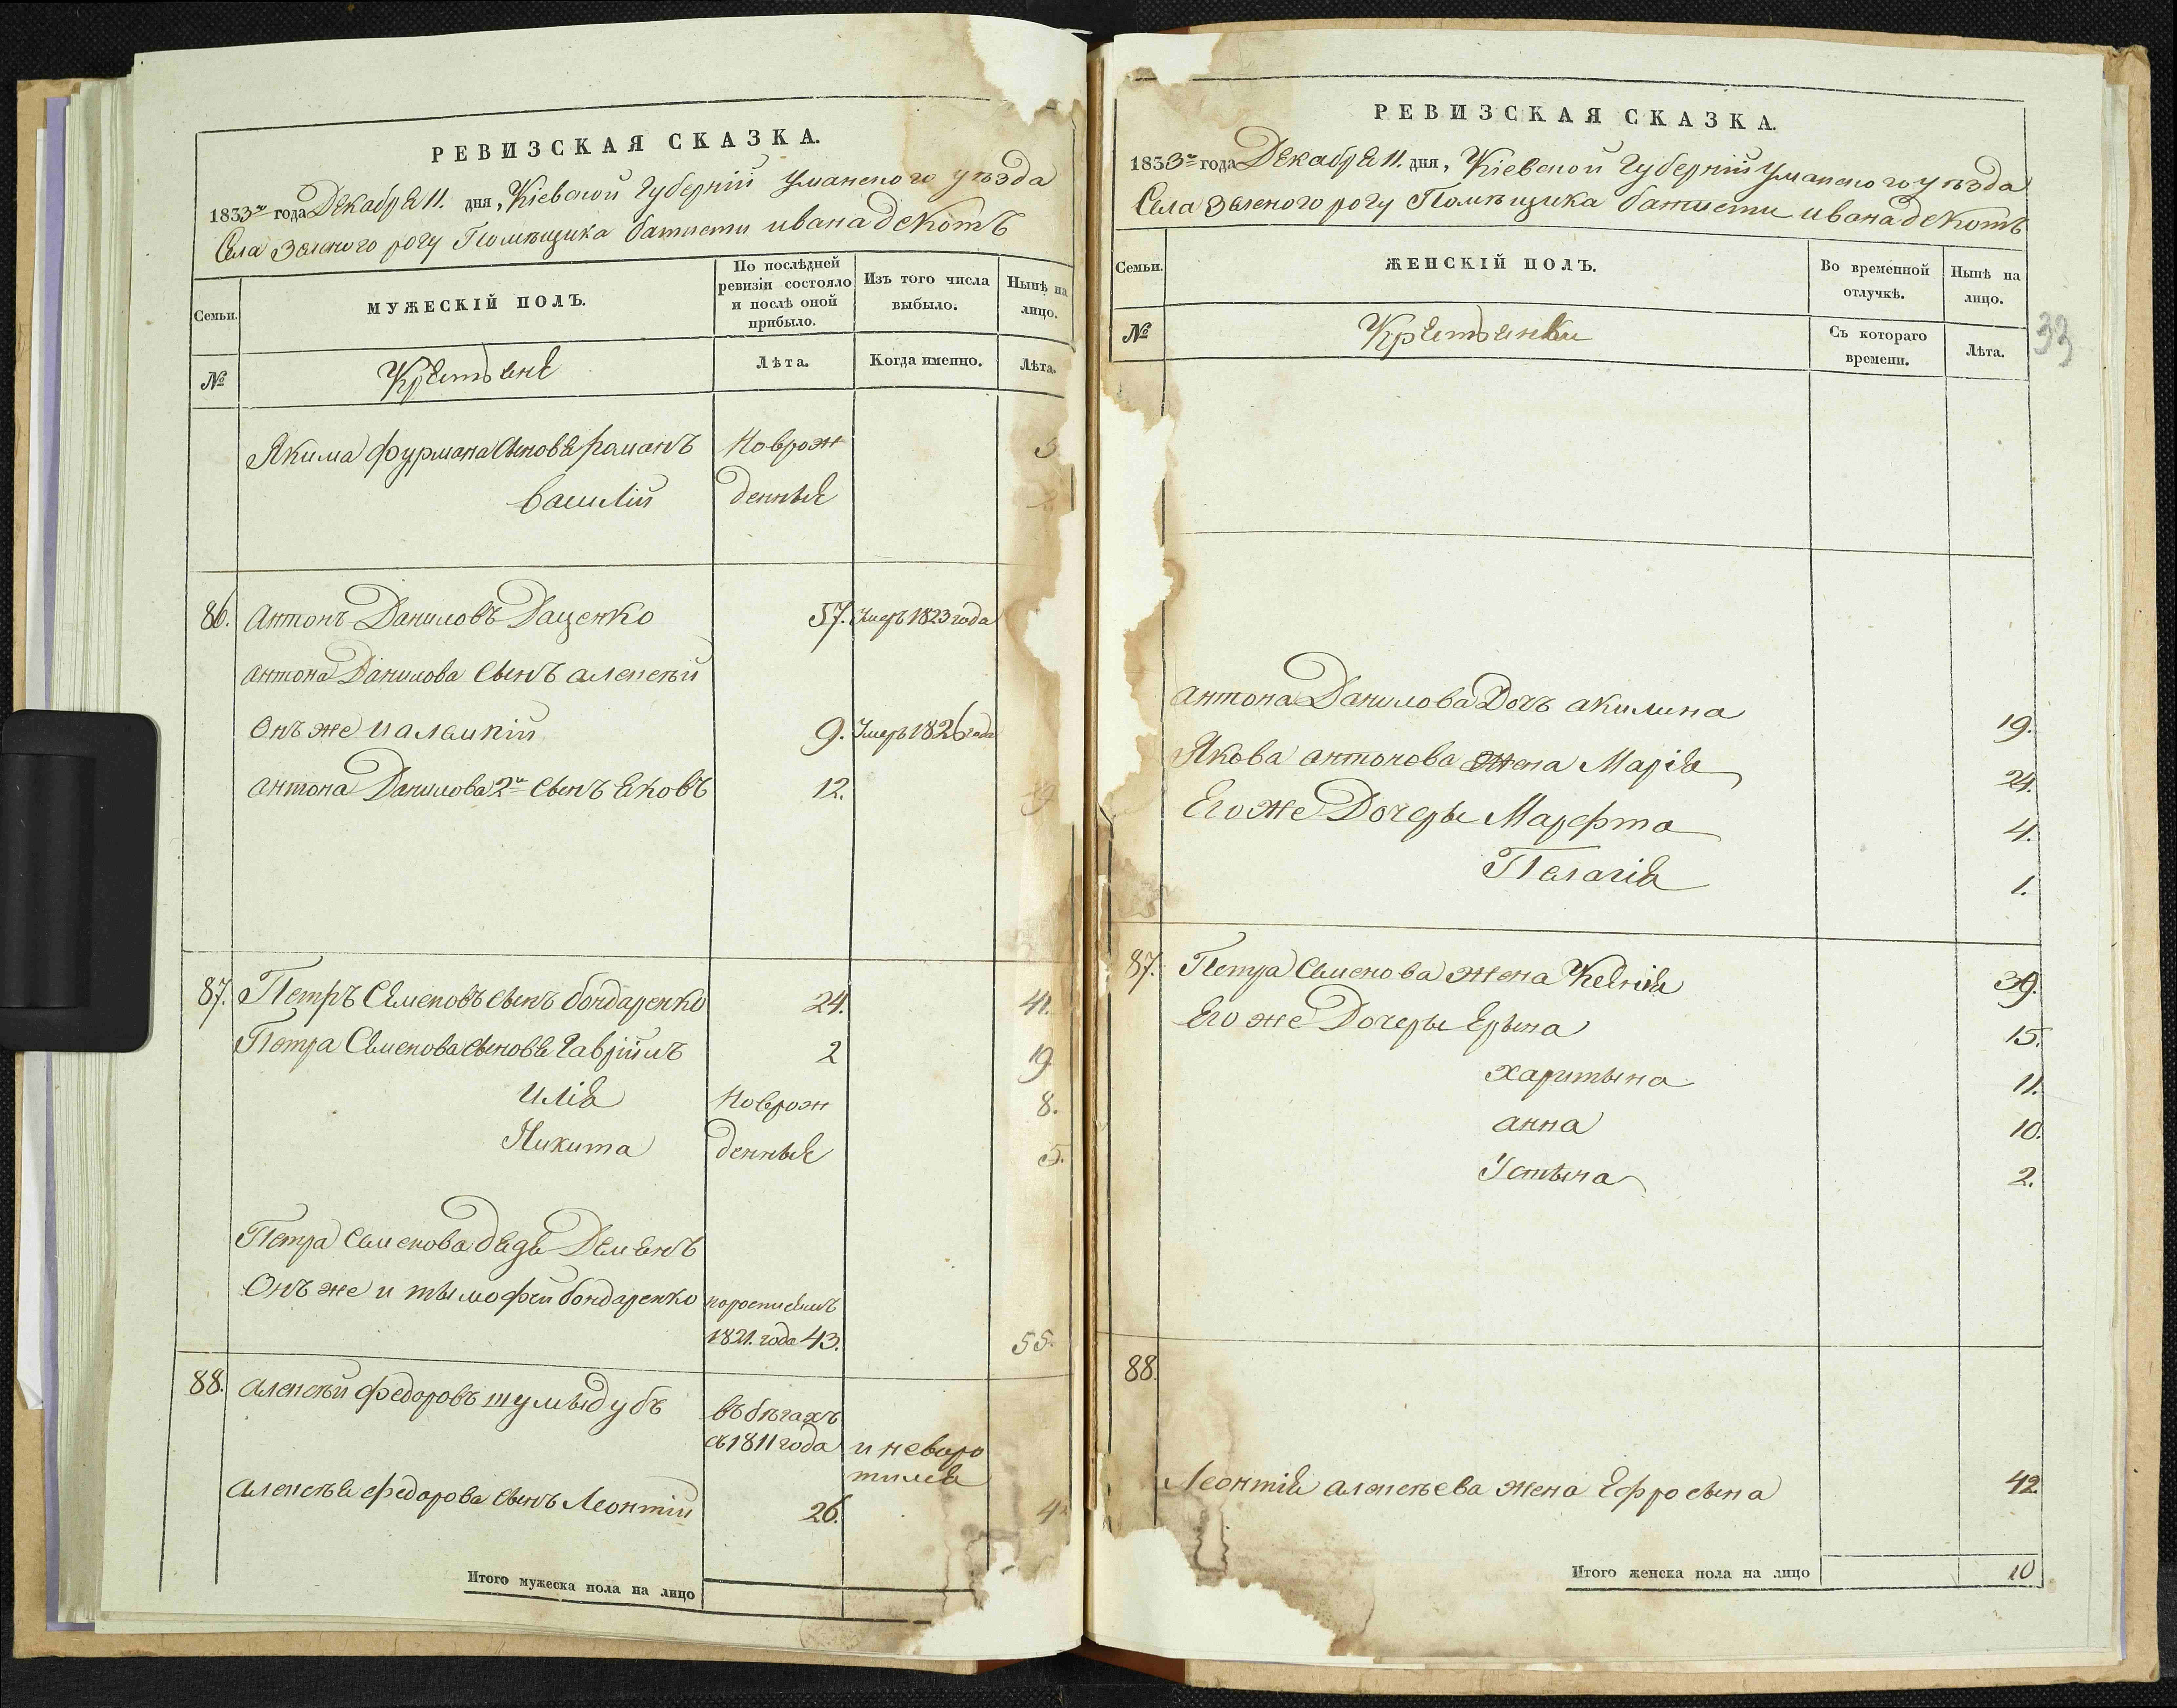 РЕВИЗСКАЯ СКАЗКА.
1833го года Декабря 11. дня, Кіевской Губерніи Уманского уѣзда
Села Зеленого рогу Помѣщика батисти ивана декотъ
Семьи.
МУЖЕСКІЙ ПОЛЪ.
По послѣдней ревизіи состояло и послѣ оной прибыло.
Изъ того числа выбыло.
Нынѣ на лицо.
№
Крестяне
Лѣта.
Когда именно.
Лѣта.
Якима фурмана Сыновя романъ Новрож 3
василій денные
86. Антонъ Даниловъ Даценко 57. Умеръ 1823 года
антона Данилова Сынъ алексѣй
Онъ же 9. Умеръ 1826 года
антона Данилова 2й Сынъ яковъ 12.
87. Петръ Семеновъ сынъ бондаренко 24. 41.
Петра Семенова сыновя Гавріилъ 2 19
илія Новрож 8.
Никита денные 5.
Петра семенова дядя Демянъ
Онъ же и тымофей бондаренко
1821. года 43. 55.
88. алексѣй федоровъ тумыдубъ въ бѣгахъ
съ 1811 года и неворо
тился
алексѣя федорова сынъ Леонтій 26. 4
Итого мужеска пола на лицо
РЕВИЗСКАЯ СКАЗКА.
1833го года Декабря 11. дня, Кіевской Губерніи Уманского уѣзда
Села Зеленого рогу Помѣщика батисти ивана декотъ
Семьи.
ЖЕНСКІЙ ПОЛЪ.
Во временной отлучкѣ.
Нынѣ на лицо.
№
Крестянки
Съ котораго времени.
Лѣта.
33
антона Данилова Дочь акилина 19.
Якова антонова жена Марія 24.
Его же Дочеры Марфта 4.
Пелагія 1.
87. Петра семенова жена Ксенія 39.
Его же Дочеры Ерына 15.
харитына 11.
анна 10.
Устына 2.
88.
Леонтія алексѣева жена Ефросына 42
Итого женска пола на лицо 10